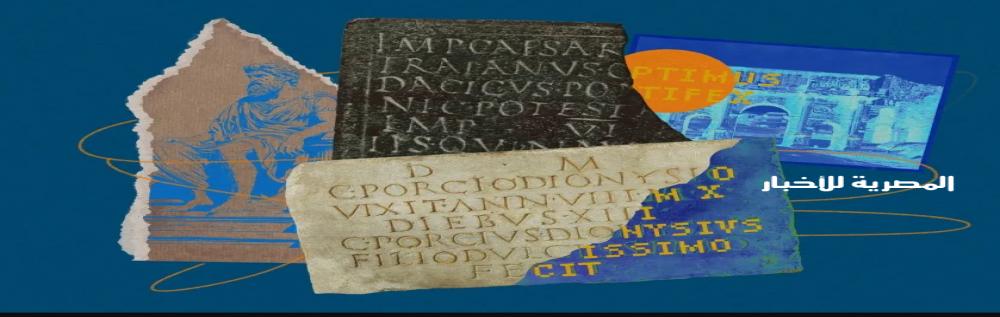 IMP CAESAR
TRAIANVS OPTIMUS
DACICVS·PONTIFEX
NIC·POTEST
IMP VI
D M
C·PORCIO DIONYSIO
VIXIT·ANN·VIII·M X
DIEBVS·XIII
C·PORCIVS·DIONYSIVS
FILIO DVLCISSIMO
FECIT
المصرية للأخبار